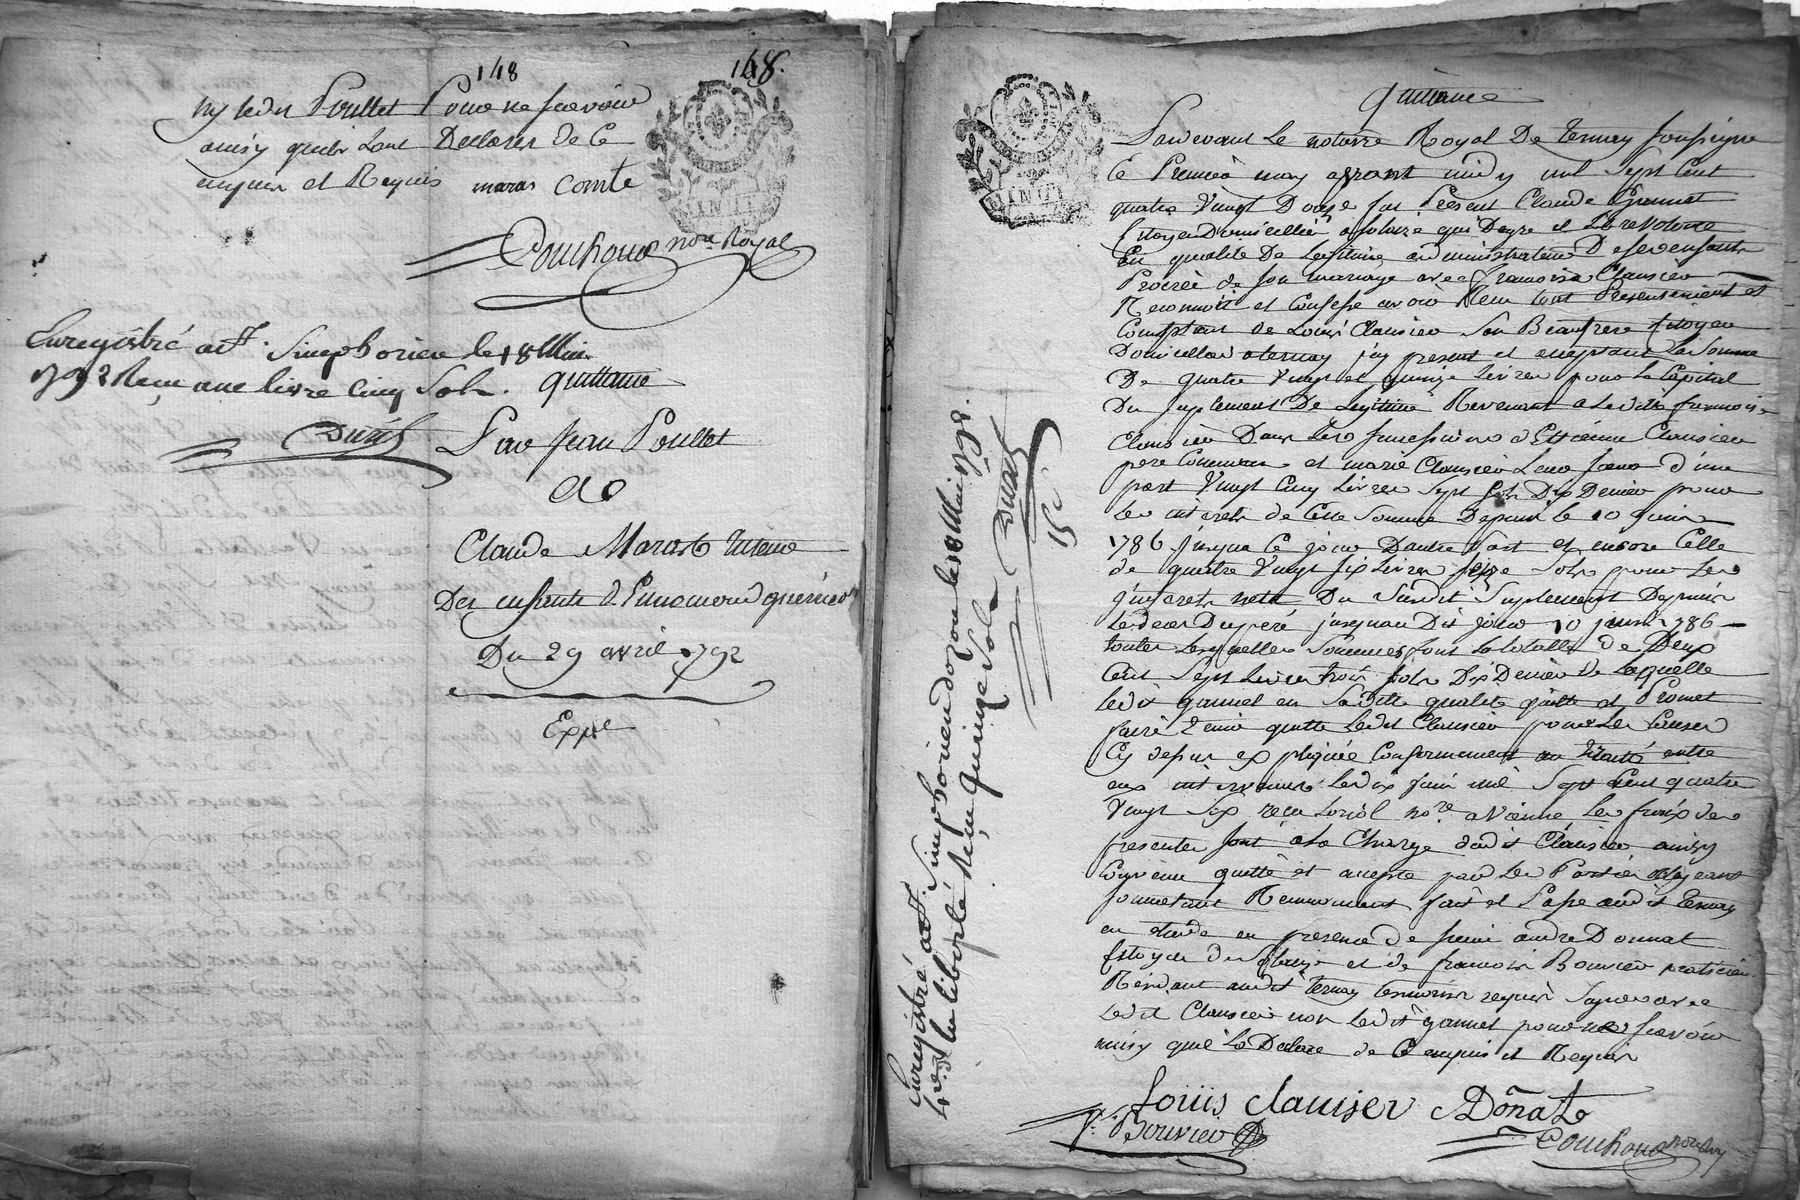 148
148.
ny ledit Poullet Pour ne scavoir
ainsy quils lont Declarer de ce
enquis et Requis maras comte
Couchoud nore Royal
Enregistré a St. Simphorien le 18 Mai
1792 Recu une livre cinq Sols.
Durest
quittance
Par Jean Poullet
A
Claude Maras
Des enfants d'Ennemond
Du 29 avril 1792
Expée
quittance
Pardevant Le notaire Royal De ternay soussigné
Le Premier may avant midy mil sept Cent
quatre Vingt Douze fut Présent Claude Gannet
Citoyen Domicillié a qui De gré et Libre Volonté
En qualité De Legitime administrateur De ses enfants
Procréé de son mariage avec francoise Clausier
Reconnoit et Confesse avoir Recu tout Presentement et
Comptant de Louis Clausier Son Beaufrere Citoyen
Domicillié a ternay j'cy present et acceptant La Somme
De quatre Vingt et quinze Livres pour le Capital
Du suplement De Legitime Revenant a Ladite francoise
Clausier Dans Les sucessions d'Ettienne Clausier
pere Commun et marie Clausier Leur soeur d'une
part Vingt Cinq Livres Sept sols Dix Denier pour
Les interets de Cette Somme Depuis le 10 juin
1786 jusqua Ce jour Dautre Part et encore Celle
de quatre Vingt six Livres seize Sols pour Les
interets Du Susdit Suplement Depuis
Le deces Du peré jusquau Dit jour 10 juin 1786
toutes Lesquelles Sommes font La totalle de Deux
Cent Sept Livres trois sols Dix Denier de Laquelle
Ledit gannet en Sadite qualité quitte et Promet
faire tenir quitte Ledit Clausier pour Les Causes
Cy dessus expliquée Conformement au traité entre
eux intervenus Le dix juin mil Sept Cent quatre
Vingt Six recu Loriol nore a Vienne Les fraix des
presentes sont a La Charge dudit Clausier ainsy
Convenu quitté et accepté par Les Parties obligeant
soumettant Renoncant fait et Passé audit ternay
en etude en presence De sieur andre Donnat
Citoyen et de francois Bouvier praticien
Résidant audit ternay temoins requis Signes avec
Ledit Clausier non Ledit gannet pour ne scavoir
ainsy quil La Declaré de Ce enquis et Requis
Louis clausier Donat
f. Bouvier
Couchoud nore Ry
Enregistré a St. Simphorien dozon le 18 Mai 1792.
4e. de la liberté Recu quinze Sols
Durest
15 s